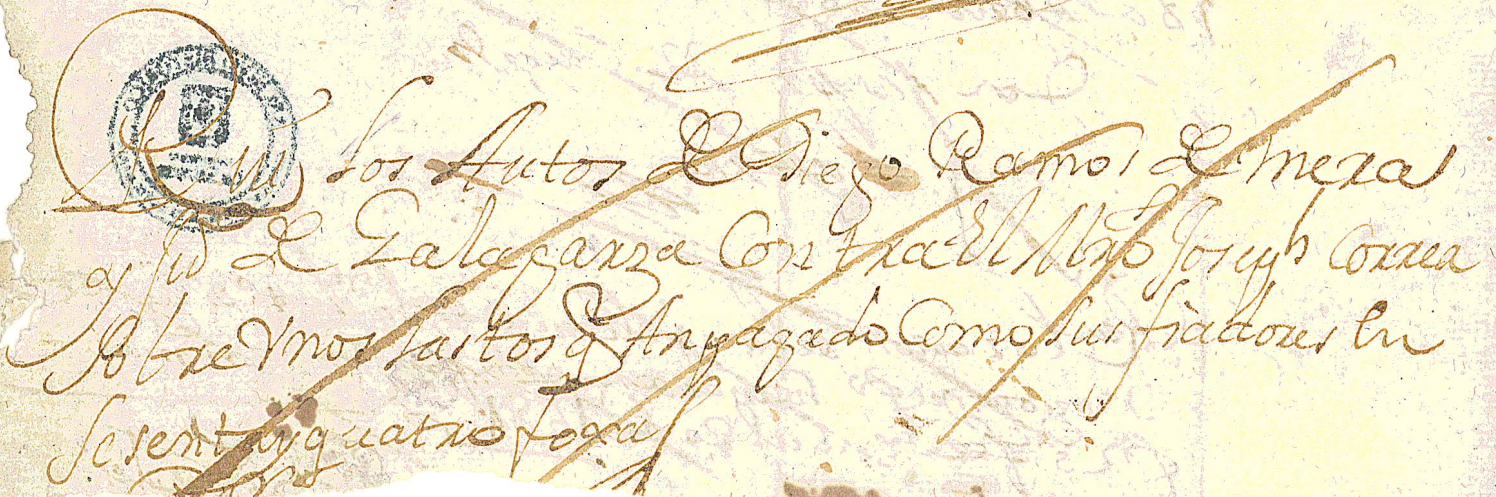 los Autos de Diego Ramos de mexa
y Jud de Galaparza Contra El Mro Joseph Correa
sobre Vnos lastos q An pagado Como sus fiadores En
sesenta y quatro foxas